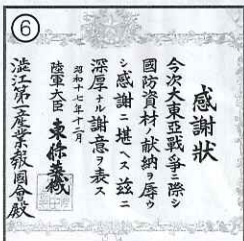 ⑥
感謝狀
今次大東亞戰爭ニ際シ
國防資材ノ献納ヲ辱ウ
シ感謝ニ堪ヘス茲ニ
深厚ナル謝意ヲ表ス
昭和十七年十二月
陸軍大臣 東條英機
澁江第一產業報國會殿